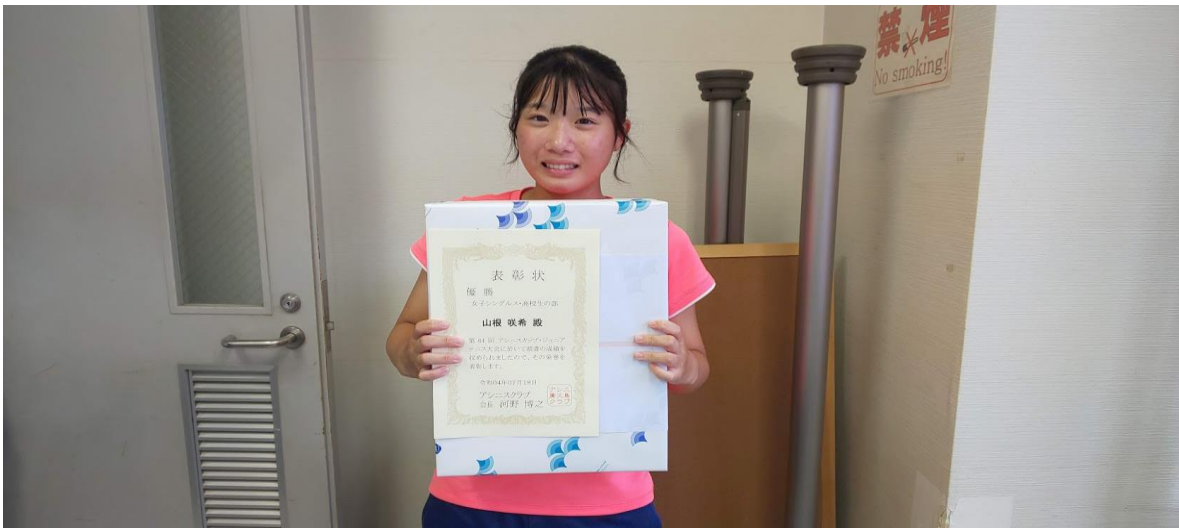 禁煙
No smoking!
表彰状
優勝
女子シングルス・高校生の部
山根 咲希 殿
第 84 回 アシニスカップ・ジュニア
テニス大会に於いて頭書の成績を
収められましたので、その栄誉を
表彰します。
令和04年07月18日
アシニスクラブ
会長 河野 博之